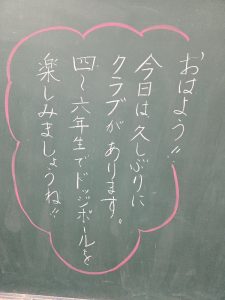 おはよう!!
今日は久しぶりに
クラブがあります。
四〜六年生でドッジボールを
楽しみましょうね!!